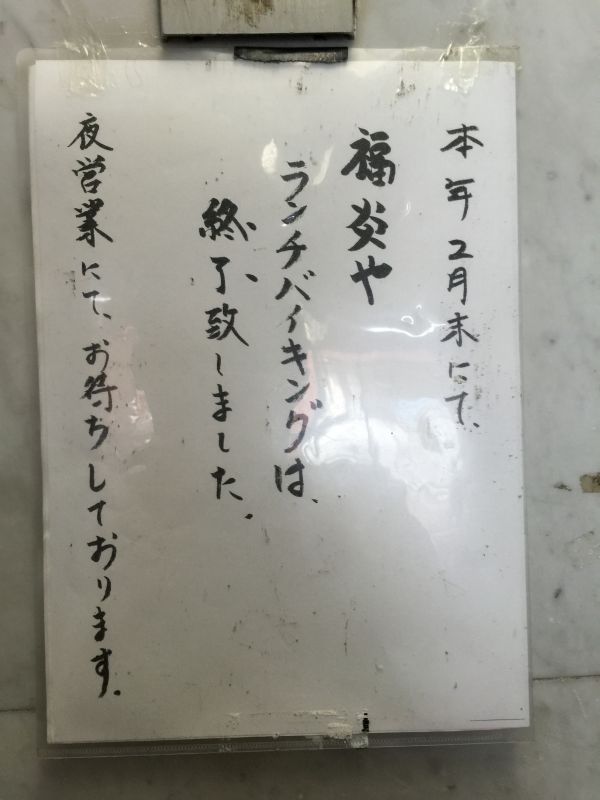 本年2月末にて、
福炎や
ランチバイキングは、
終了致しました。
夜営業にて、お待ちしております。